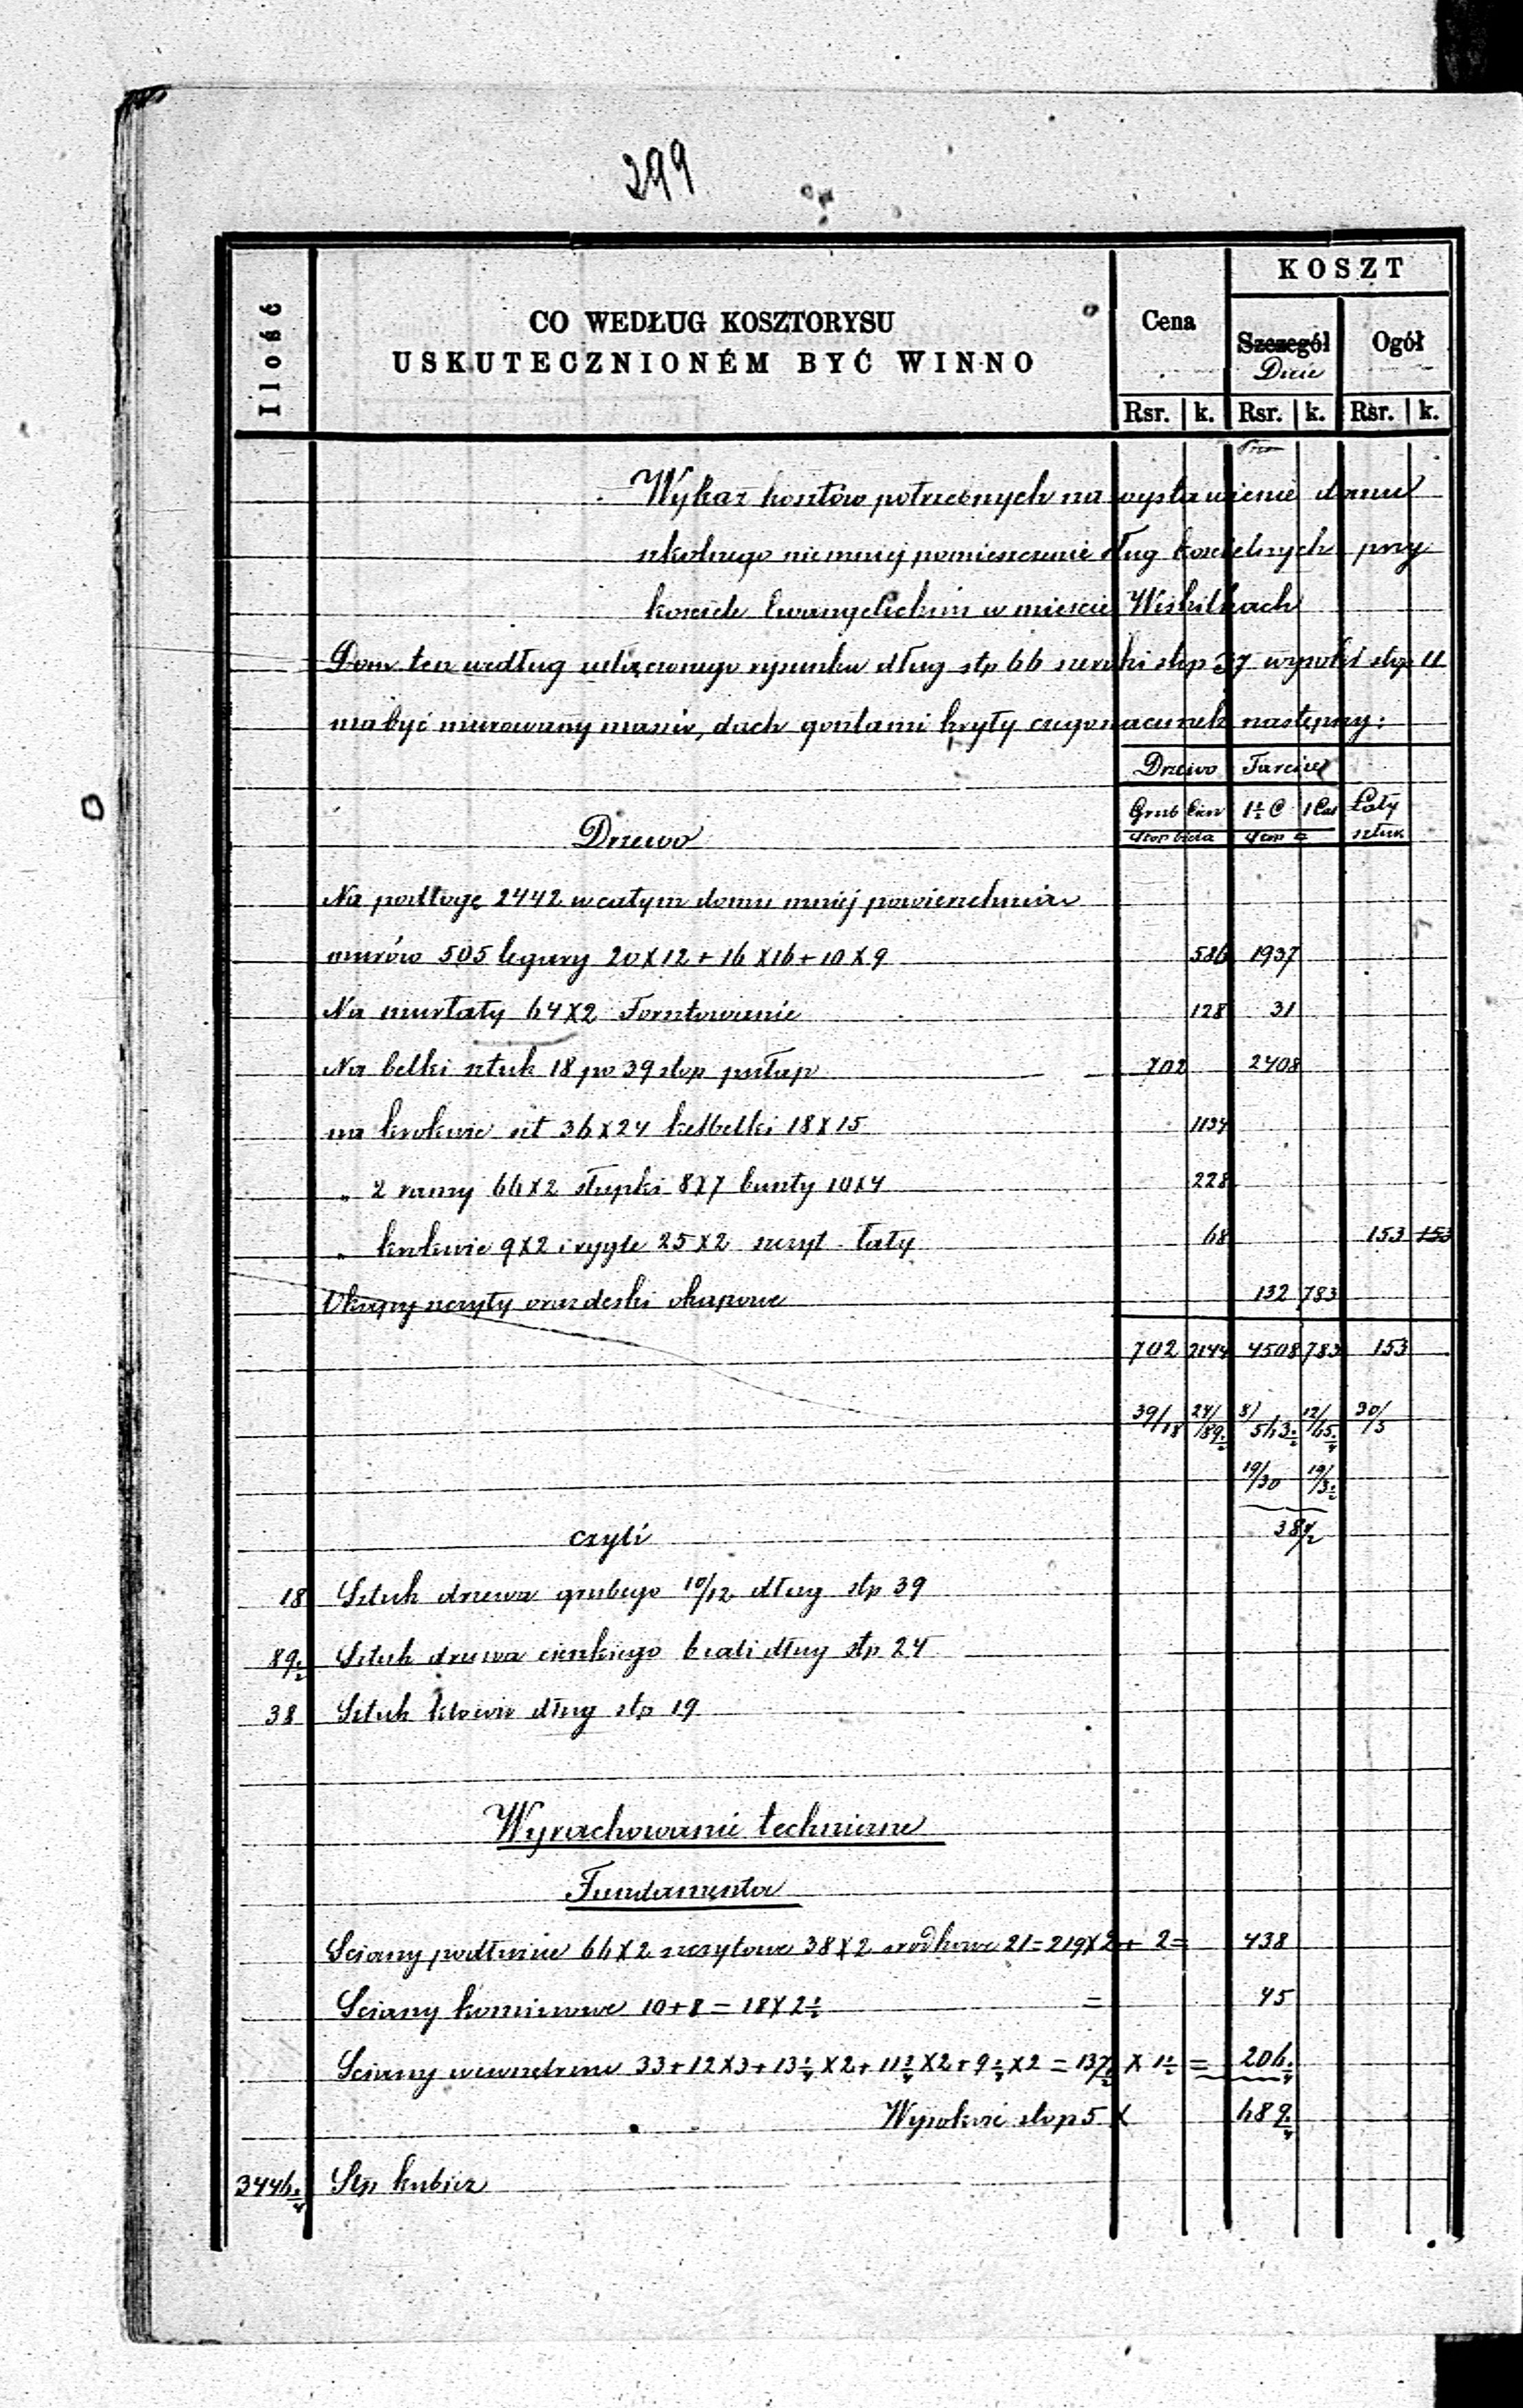 299
Ilość
CO WEDŁUG KOSZTORYSU
USKUTECZNIONÉM BYĆ WINNO
Cena
KOSZT
Szczegół
Ogół
Rsr. k. Rsr. k. Rsr. k.
Wykaz kosztów potrzebnych na wystawienie domu
szkolnego niemniej pomieszczenie sług kościelnych przy
kościele Ewangelickim w mieście Wiskitkach
Dom ten według załączonego rysunku dług stp 66 szeroki stop 37 wysokś stop 11
ma być murowany masiw, dach gontami kryty czego szacunek następny:
Drzewo Tarcice
Grub Cien 1½ C 1 Cal Łaty
stop bieża stop □ sztuk
Drzewo
Na podłogę 2442 w całym domu mniej powierzchnia
murów 505 legary 20X12+16X16+10X9 586 1937
Na murłaty 64X2 Forsztowanie 128 31
Na belki sztuk 18 po 39 stop pułap 702 2408
na krokwie szt 36X24 kelbelki 18X15 1134
" 2 ramy 66X2 słupki 8X7 bunty 10X4 228
" krokwie 9X2 i rygle 25X2 szczyt łaty 68 153 153
Okapy szczyty oraz deski okapowe 132 783
702 2144 4508 783 153
39/18 24/89½ 8/563½ 12/65¼ 30/5
19/30 19/3½
38½
czyli
18 Sztuk drzewa grubego 10/12 dług stp 39
89½ Sztuk drzewa cienkiego 6 cali dług stp 24
38 Sztuk kloców dług stp 19
Wyrachowanie techniczne
Fundamenta
Sciany podłużne 66X2 szczytowe 38X2 srodkowe 21=219X2+2= 438
Sciany kominowe 10+8=18X2½ = 45
Sciany wewnetrzne 33+12X3+13¼X2+11¾X2+9¼X2=137½ X 1½ = 206¼
Wysokosć stop 5 X 689¼
3446¼ Stp kubicz